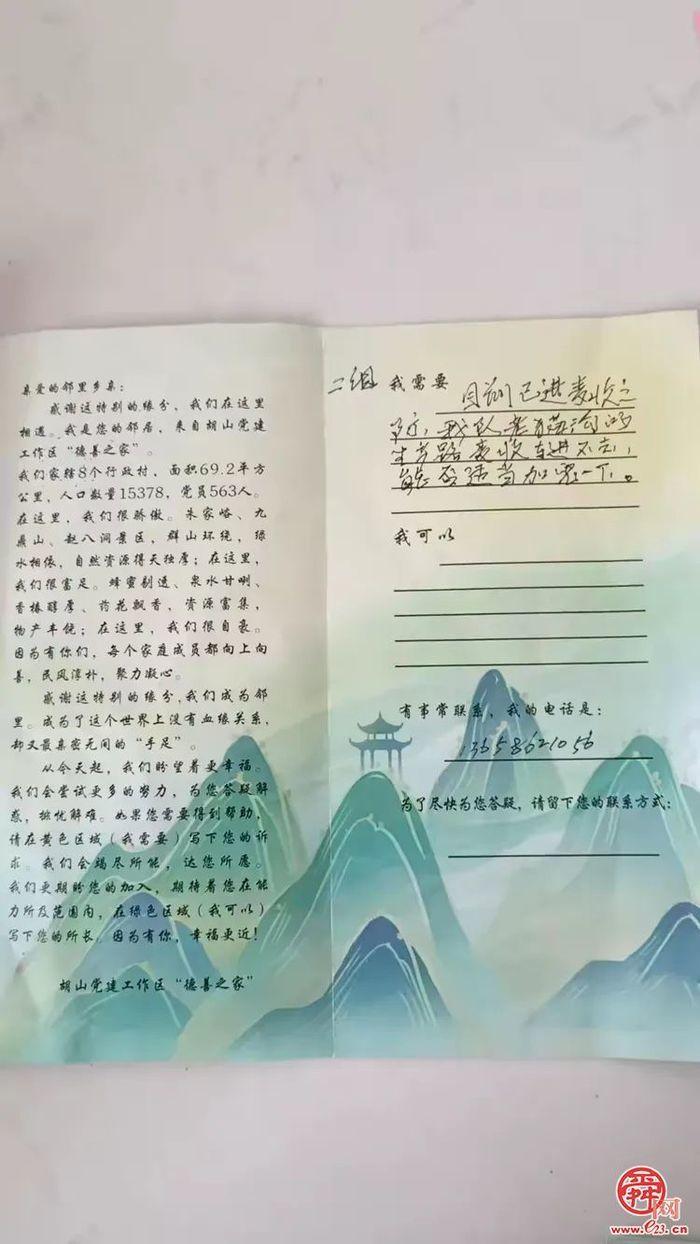 亲爱的邻里乡亲：
感谢这特别的缘分，我们在这里
相遇。我是您的邻居，来自胡山党建
工作区“德善之家”。
我们家辖8个行政村，面积69.2平方
公里，人口数量15378，党员563人。
在这里，我们很骄傲。朱家峪、九
鼎山、赵八洞景区，群山环绕，绿
水相依，自然资源得天独厚；在这里，
我们很富足。蜂蜜剔透、泉水甘咧、
香椿醇厚、药花飘香，资源富集，
物产丰饶；在这里，我们很自豪。
因为有你们，每个家庭成员都向上向
善，民风淳朴，聚力凝心。
感谢这特别的缘分，我们成为邻
里。成为了这个世界上没有血缘关系，
却又最亲密无间的“手足”。
从今天起，我们盼望着更幸福。
我们会尝试更多的努力，为您答疑解
惑，排忧解难。如果您需要得到帮助，
请在黄色区域（我需要）写下您的诉
求。我们会竭尽所能，达您所愿。
我们更期盼您的加入，期待着您在能
力所及范围内，在绿色区域（我可以）
写下您的所长。因为有你，幸福更近！
胡山党建工作区“德善之家”
二组 我需要 目前已进麦收之
际，我队老
生产路麦收车进不去，
能否适当加宽一下。
我可以
有事常联系，我的电话是：
13658621056
为了尽快为您答疑，请留下您的联系方式：
舜网
www.e23.cn